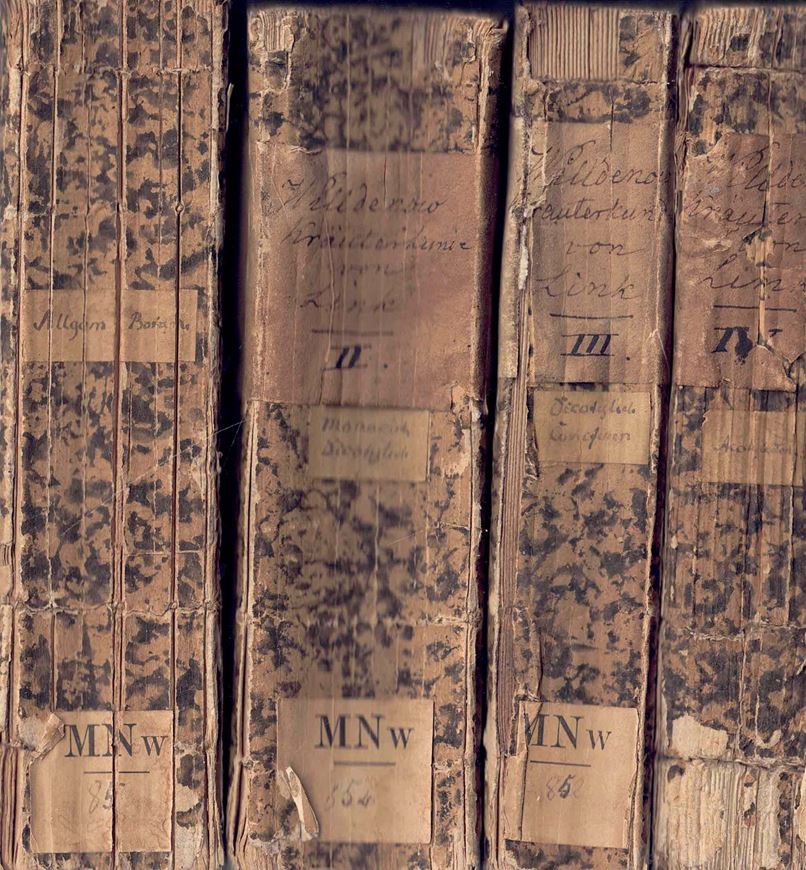 Allgem Botan
Willdenow
Kräuterkunde
von
Link
II.
Monocotyl
Dicotyled
MNw
85
MNw
852
Willdenow
Kräuterkun
von
Link
III.
Dicotyled
Coniferen
MNw
852
Willde
Kräuter
von
Link
IV.